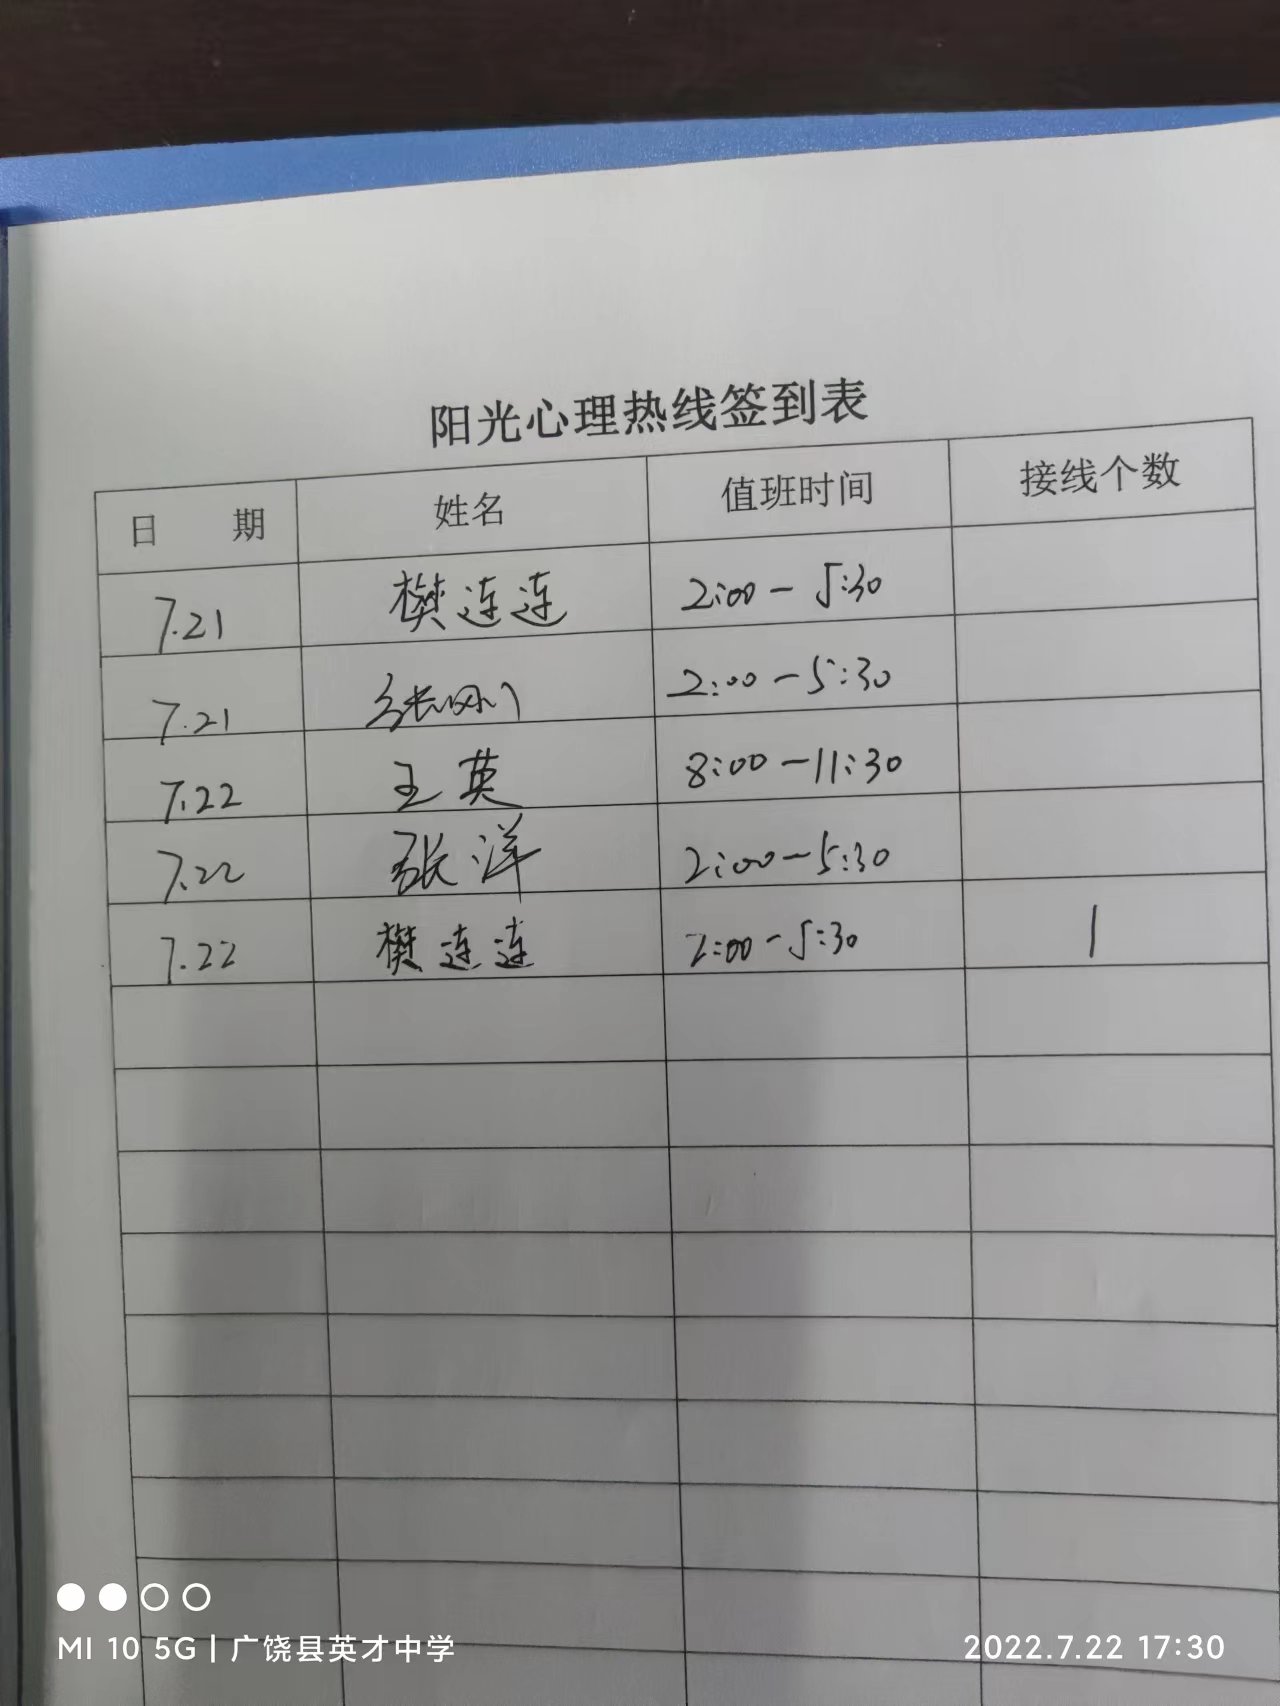 阳光心理热线签到表
日 期 姓名 值班时间 接线个数
7.21 樊连连 2:00-5:30
7.21 张刚 2:00-5:30
7.22 王英 8:00-11:30
7.22 张洋 2:00-5:30
7.22 樊连连 2:00-5:30 1
MI 10 5G | 广饶县英才中学 2022.7.22 17:30